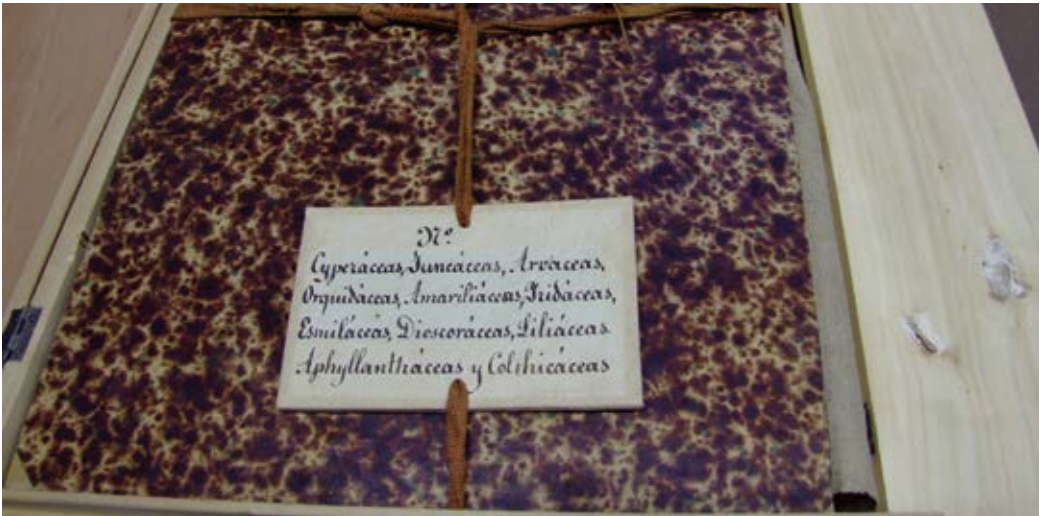 Nº
Cyperáceas, Juncáceas, Aroáceas,
Orquidáceas, Amariliáceas, Iridáceas,
Esmiláceas, Dioscoráceas, Liliáceas
Aphyllantháceas y Colchicáceas